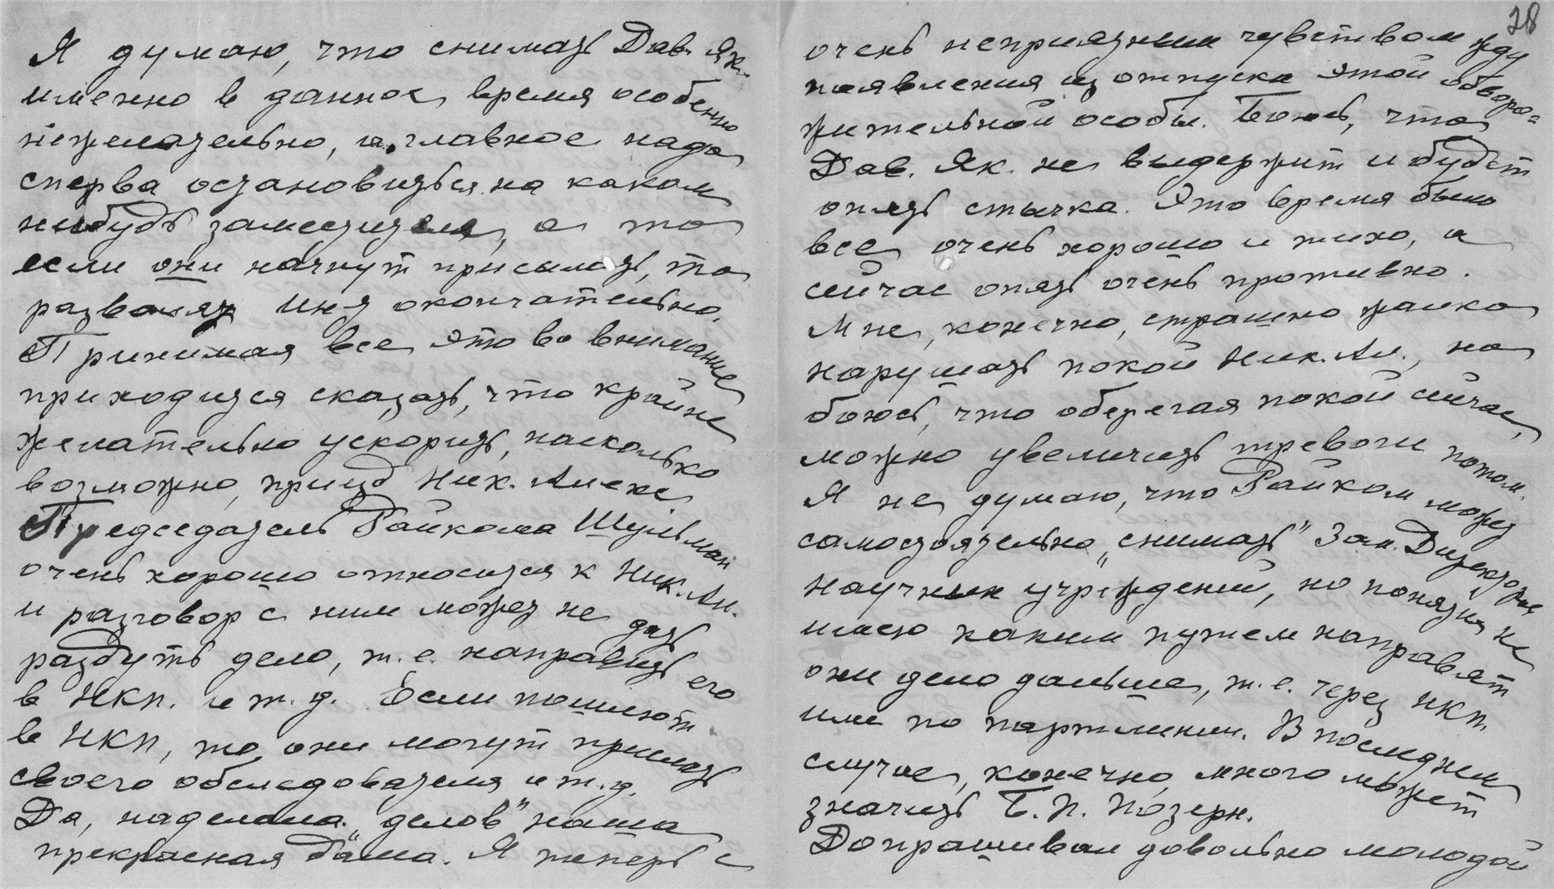 Я думаю, что снимать Дав. Як.
именно в данное время особенно
нежелательно, и, главное надо
сперва остановиться на каком
нибудь заместителе, а то
если они начнут присылать, то
развалят Ин-т окончательно.
Принимая все это во внимание
приходится сказать, что крайне
желательно ускорить, насколько
возможно, приезд Ник. Алекс
Председатель Райкома Шульман
очень хорошо относится к Ник. Ал.
и разговор с ним может не дать
раздуть дело, т.е. направить его
в НКП. и т.д. Если пошлют
в НКП, то они могут прислать
своего обследователя и т.д.
Да, наделала "делов" наша
прекрасная дама. Я теперь с
28
очень неприязным чувством жду
появления из отпуска этой обворо=
жительной особы. Боюсь, что
Дав. Як. не выдержит и будет
опять стычка. Это время было
все очень хорошо и тихо, а
сейчас опять очень противно.
Мне, конечно, страшно жалко
нарушать покой Ник. Ал., но
боюсь, что оберегая покой сейчас,
можно увеличить тревоги потом.
Я не думаю, что Райком может
самостоятельно "снимать" Зам. Директоров
научных учреждений, но понятия не
имею каким путем направят
они дело дальше, т.е. через НКП.
или по партлинии. В последнем
случае, конечно, много может
значить Б.П. Позерн.
Допрашивал довольно молодой